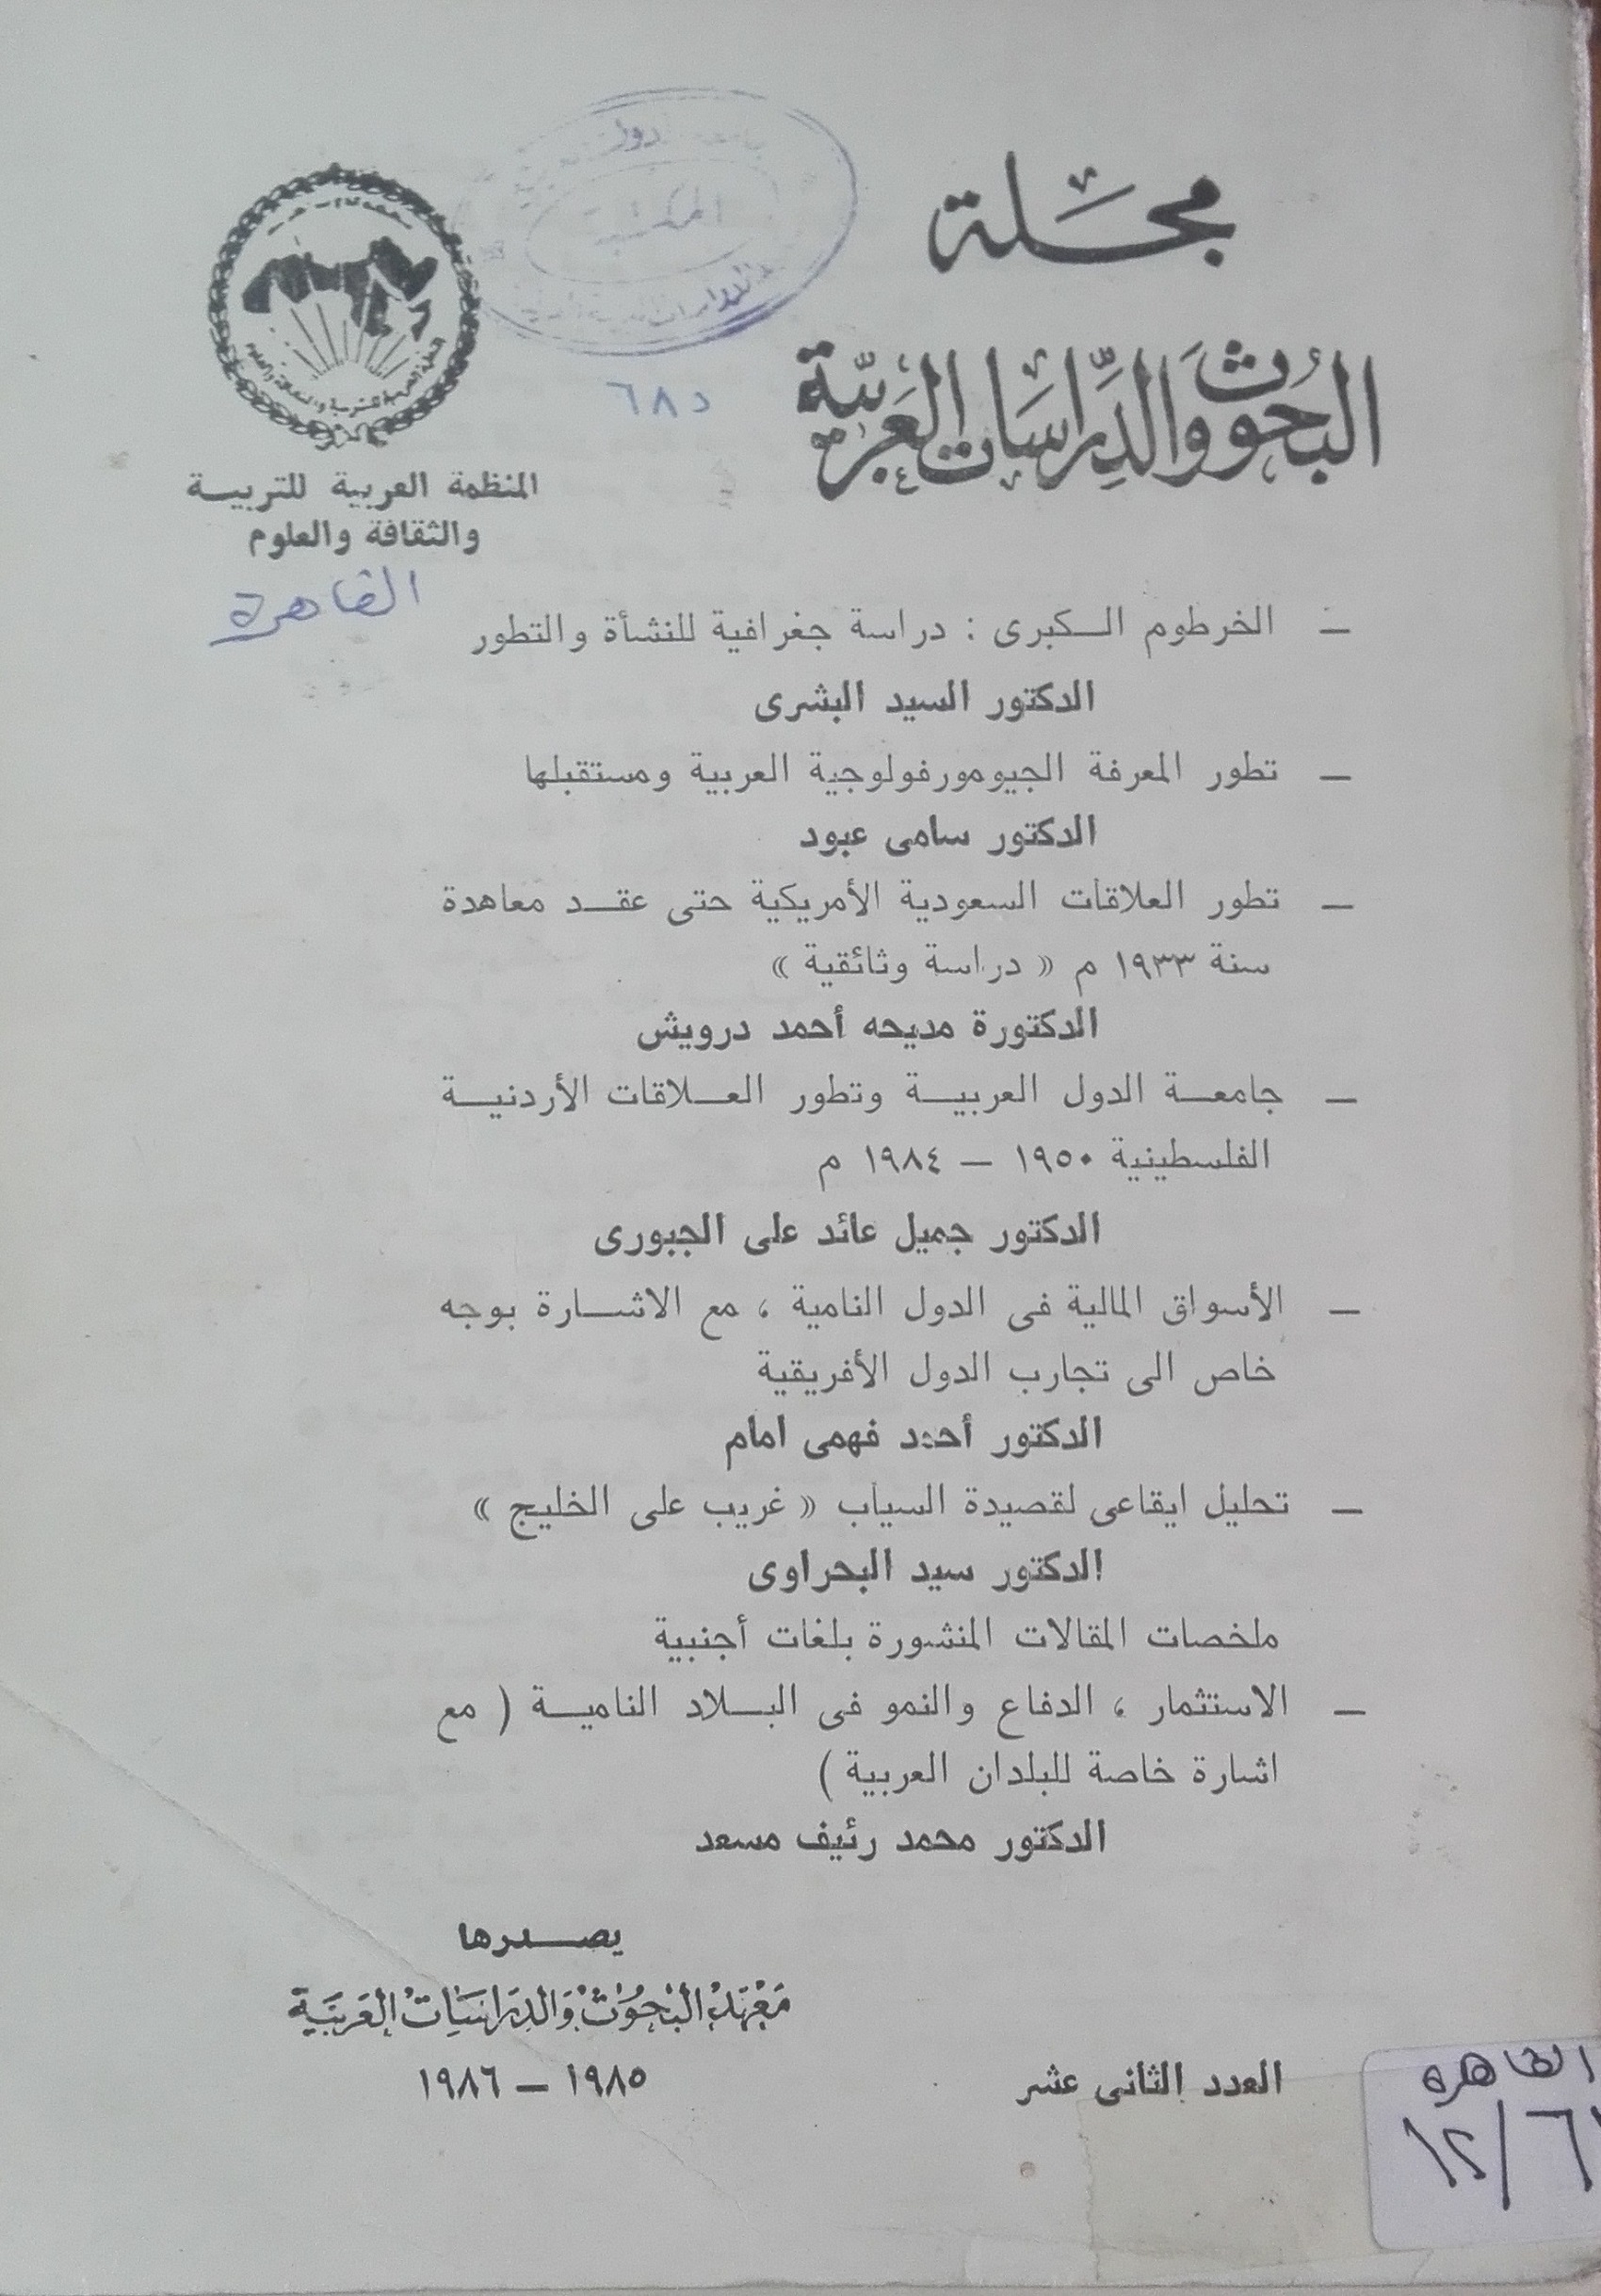 مجلة
البحوث والدراسات العربية
المكتبة
د ٦٨
المنظمة العربية للتربيـــة
والثقافة والعلوم
القاهرة
— الخرطوم الـــكبرى : دراسة جغرافية للنشأة والتطور
الدكتور السيد البشرى
— تطور المعرفة الجيومورفولوجية العربية ومستقبلها
الدكتور سامى عبود
— تطور العلاقات السعودية الأمريكية حتى عقــد معاهدة
سنة ١٩٣٣ م « دراسة وثائقية »
الدكتورة مديحه أحمد درويش
— جامعــة الدول العربيــة وتطور العــلاقات الأردنيــة
الفلسطينية ١٩٥٠ — ١٩٨٤ م
الدكتور جميل عائد على الجبورى
— الأسواق المالية فى الدول النامية ، مع الاشـــارة بوجه
خاص الى تجارب الدول الأفريقية
الدكتور أحمد فهمى امام
— تحليل ايقاعى لقصيدة السياب « غريب على الخليج »
الدكتور سيد البحراوى
ملخصات المقالات المنشورة بلغات أجنبية
— الاستثمار ، الدفاع والنمو فى البــلاد الناميــة ( مع
اشارة خاصة للبلدان العربية )
الدكتور محمد رئيف مسعد
يصـــدرها
معهد البحوث والدراسات العربية
العدد الثانى عشر
١٩٨٥ — ١٩٨٦
القاهرة